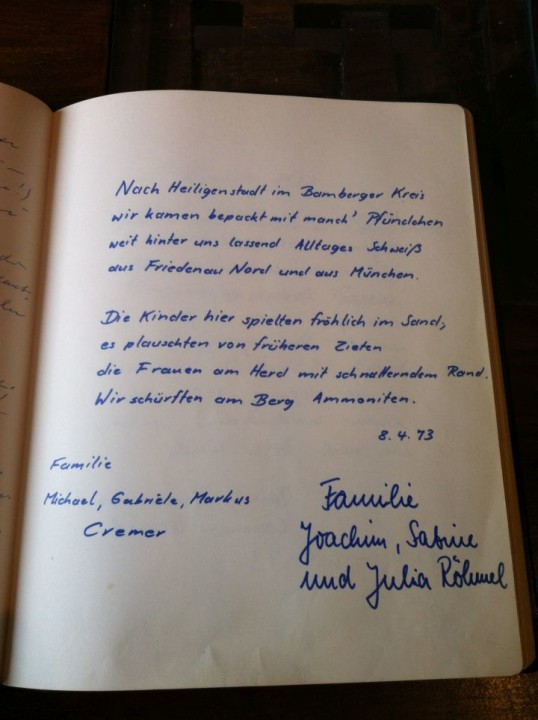 Nach Heiligenstadt im Bamberger Kreis
wir kamen bepackt mit manch' Pfündchen
weit hinter uns lassend Alltages Schweiß
aus Friedenau Nord und aus München.
Die Kinder hier spielten fröhlich im Sand,
es plauschten von früheren Zieten
die Frauen am Herd mit schnatterndem Rand.
Wir schürften am Berg Ammoniten.
8. 4. 73
Familie
Michael, Gabriele, Markus
Cremer
Familie
Joachim, Sabine
und Julia Röhmel